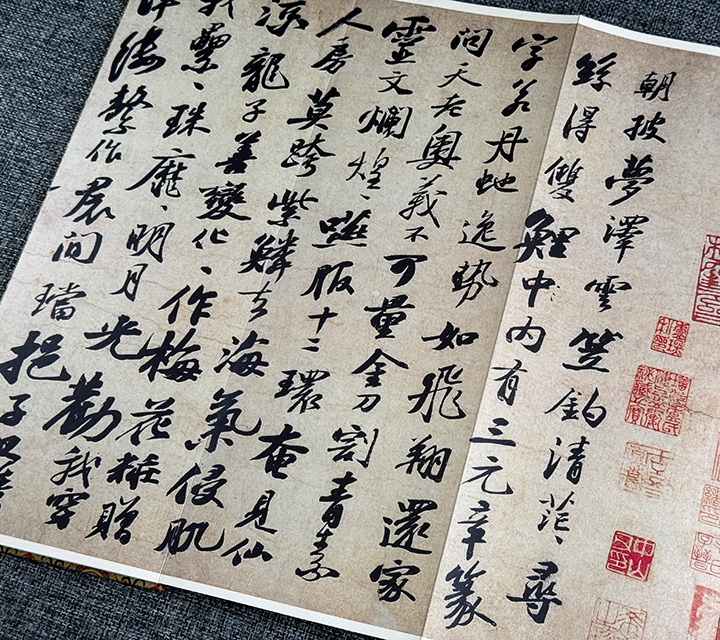 朝披夢澤雲笠釣清茫〻尋
絲得雙鯉中内有三元章篆
字若丹虵逸勢如飛翔還家
問天老奧義不可量金刀割青素
靈文爛煌〻嚥服十二環奄見仙
人房莫跨紫鱗去海氣侵肌
涼龍子善變化〻作梅花粧贈
我纍〻珠靡〻明月光勸我穿
絳縷繫作裙間璫挹子以